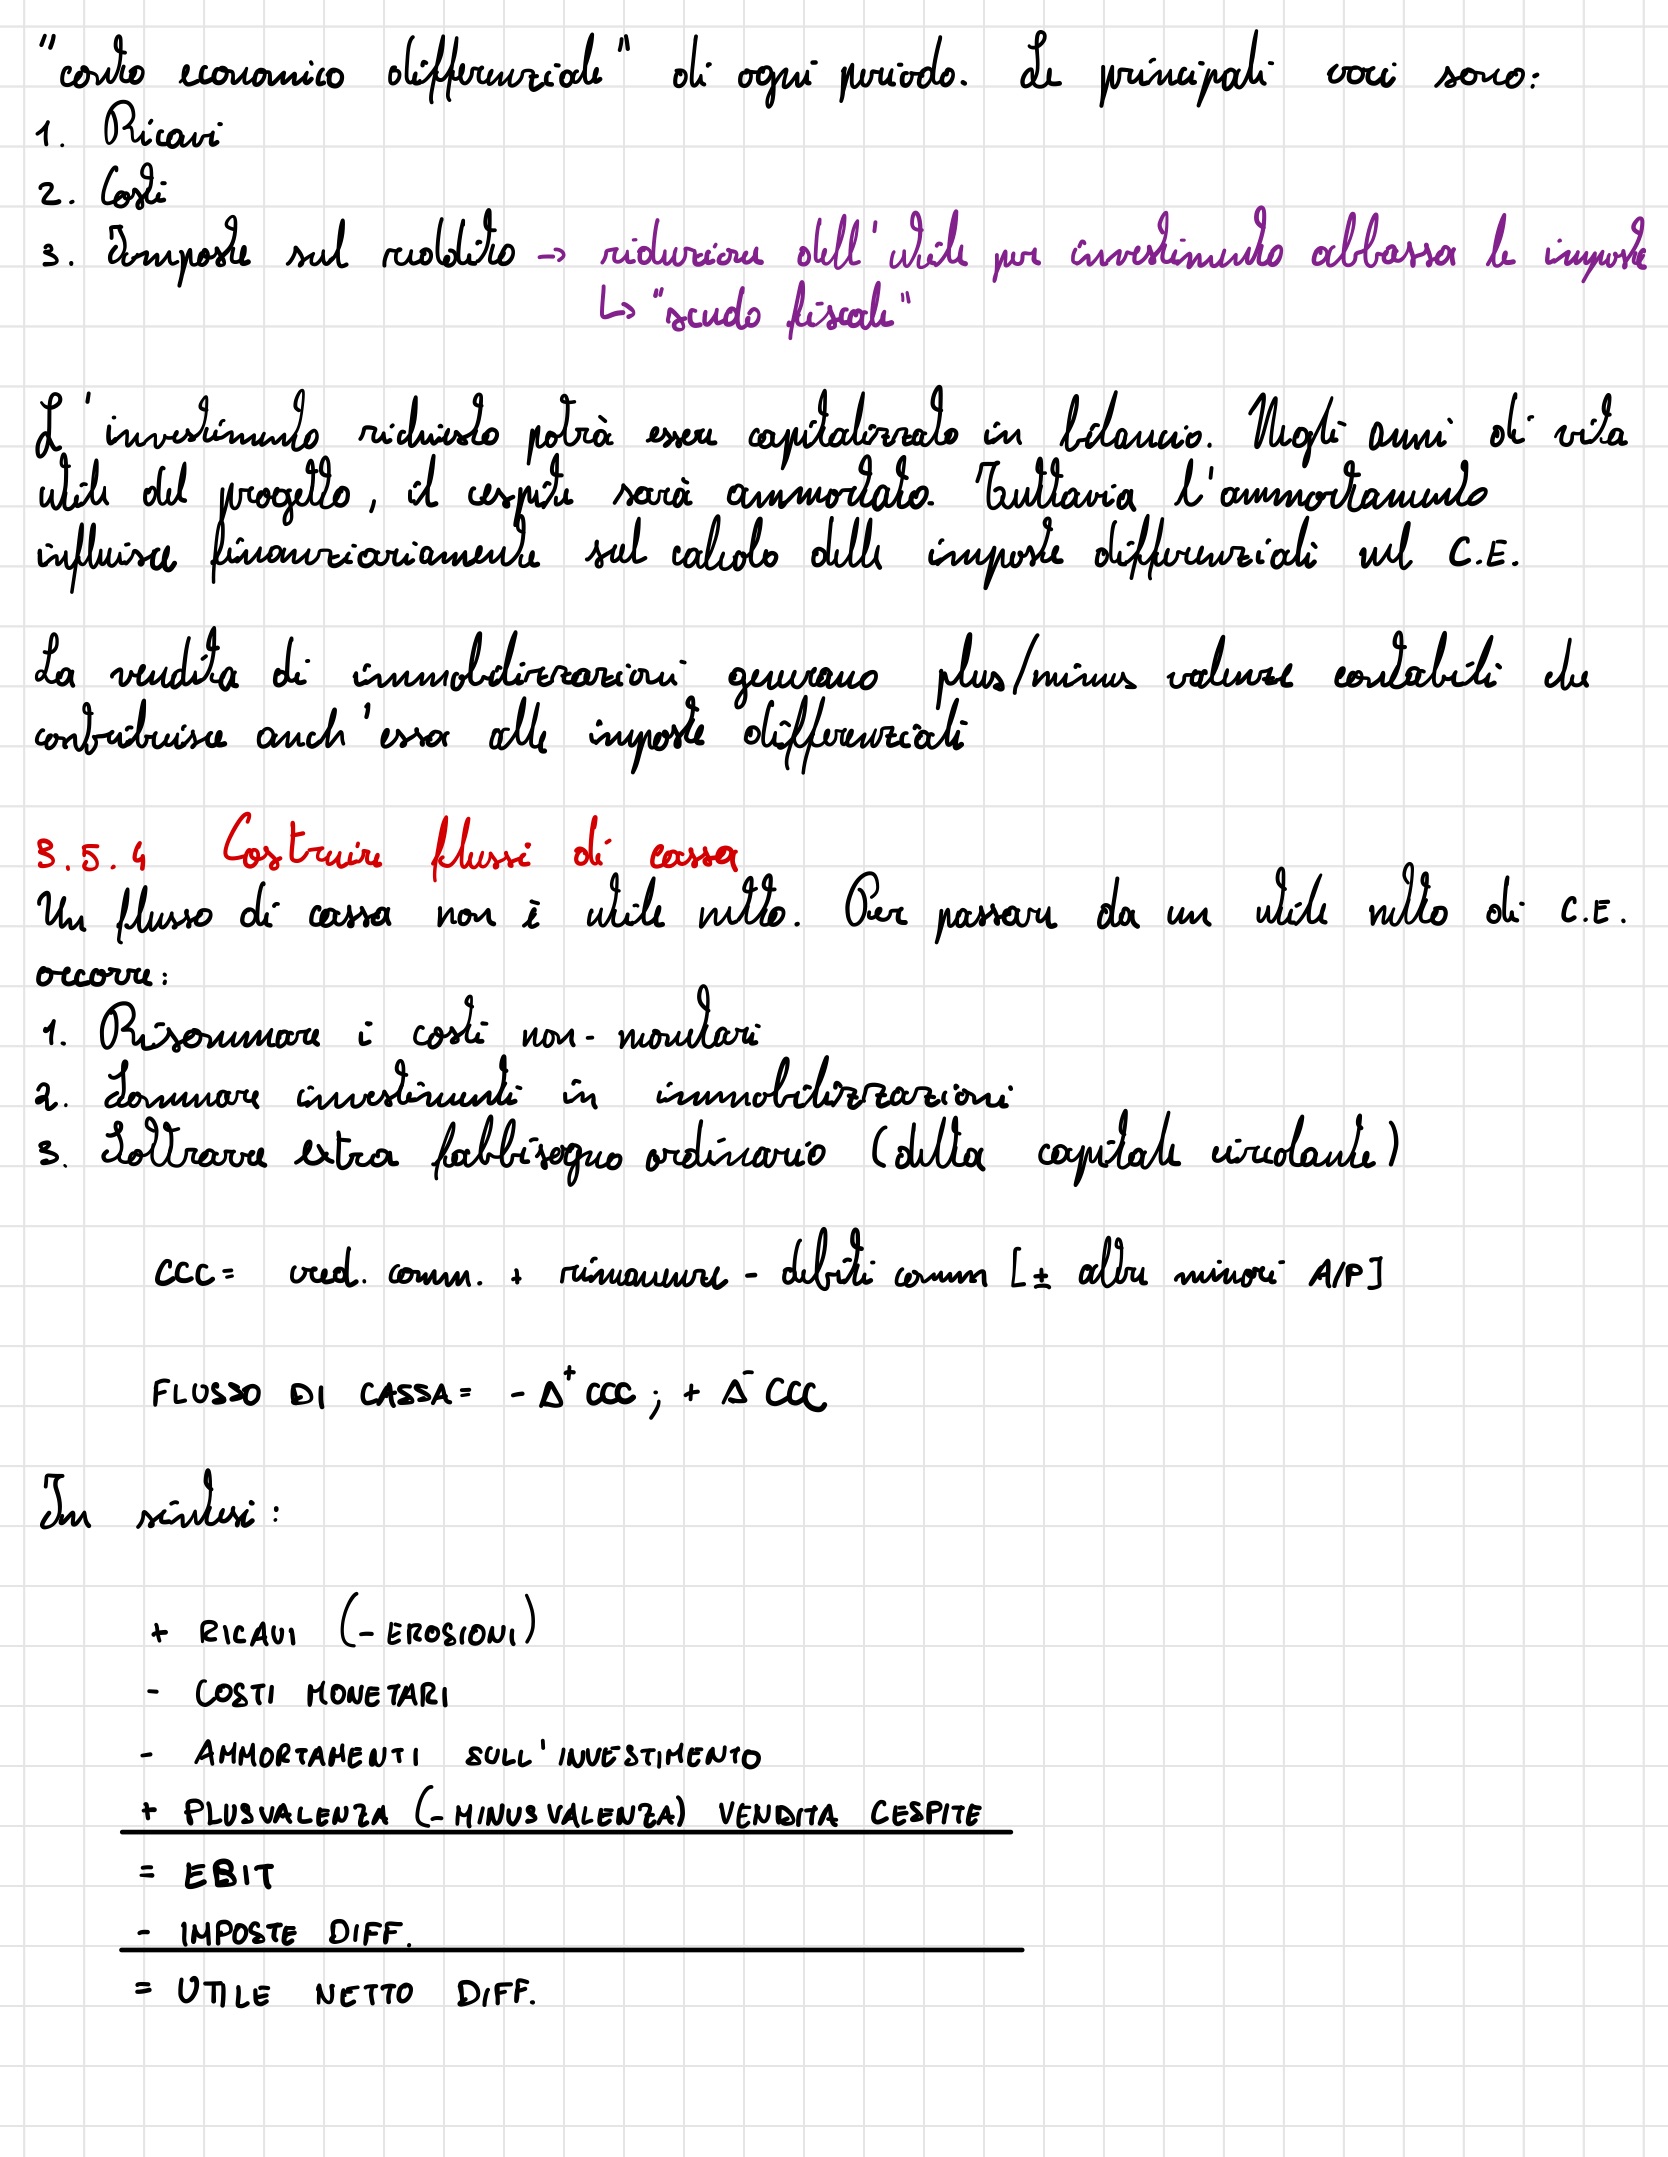 "conto economico differenziale" di ogni periodo. Le principali voci sono:
1. Ricavi
2. Costi
3. Imposte sul reddito → riduzione dell'utile per investimento abbassa le imposte
↳ "scudo fiscale"
L'investimento richiesto potrà essere capitalizzato in bilancio. Negli anni di vita
utile del progetto, il cespite sarà ammortato. Tuttavia l'ammortamento
influisce finanziariamente sul calcolo delle imposte differenziali nel C.E.
La vendita di immobilizzazioni generano plus/minus valenze contabili che
contribuisce anch'essa alle imposte differenziali
3.5.4 Costruire flussi di cassa
Un flusso di cassa non è utile netto. Per passare da un utile netto di C.E.
occorre:
1. Risommare i costi non-monetari
2. Sommare investimenti in immobilizzazioni
3. Sottrarre extra fabbisogno ordinario (delta capitale circolante)
CCC = cred. comm. + rimanenze - debiti comm [± altre minori A/P]
FLUSSO DI CASSA = - Δ⁺ CCC ; + Δ⁻ CCC
In sintesi:
+ RICAVI (- EROSIONI)
- COSTI MONETARI
- AMMORTAMENTI SULL'INVESTIMENTO
+ PLUSVALENZA (- MINUSVALENZA) VENDITA CESPITE
= EBIT
- IMPOSTE DIFF.
= UTILE NETTO DIFF.